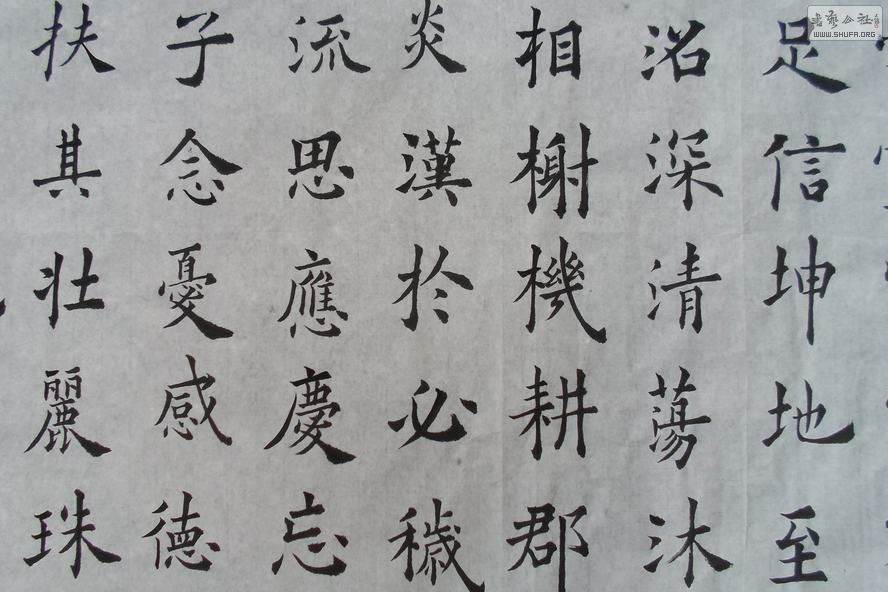 足信坤地至
深清蕩沐
相榭機耕郡
炎漢於必穢
流思應慶忘
子念憂感德
扶其壯麗珠
書藝公社
WWW.SHUFA.ORG